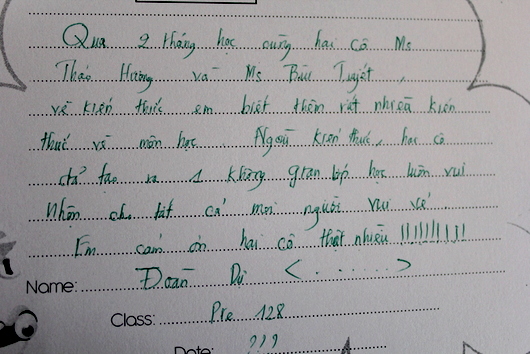 Qua 2 tháng học cùng hai cô Ms
Thảo Hương và Ms Bùi Tuyết,
về kiến thức em biết thêm rất nhiều kiến
thức về môn học. Ngoài kiến thức, hai cô
đã tạo ra 1 không gian lớp học luôn vui
nhộn cho tất cả mọi người vui vẻ.
Em cảm ơn hai cô thật nhiều !!!!!!!!!
Name: Đoàn Dự <......>
Class: Pre 128
Date: ???